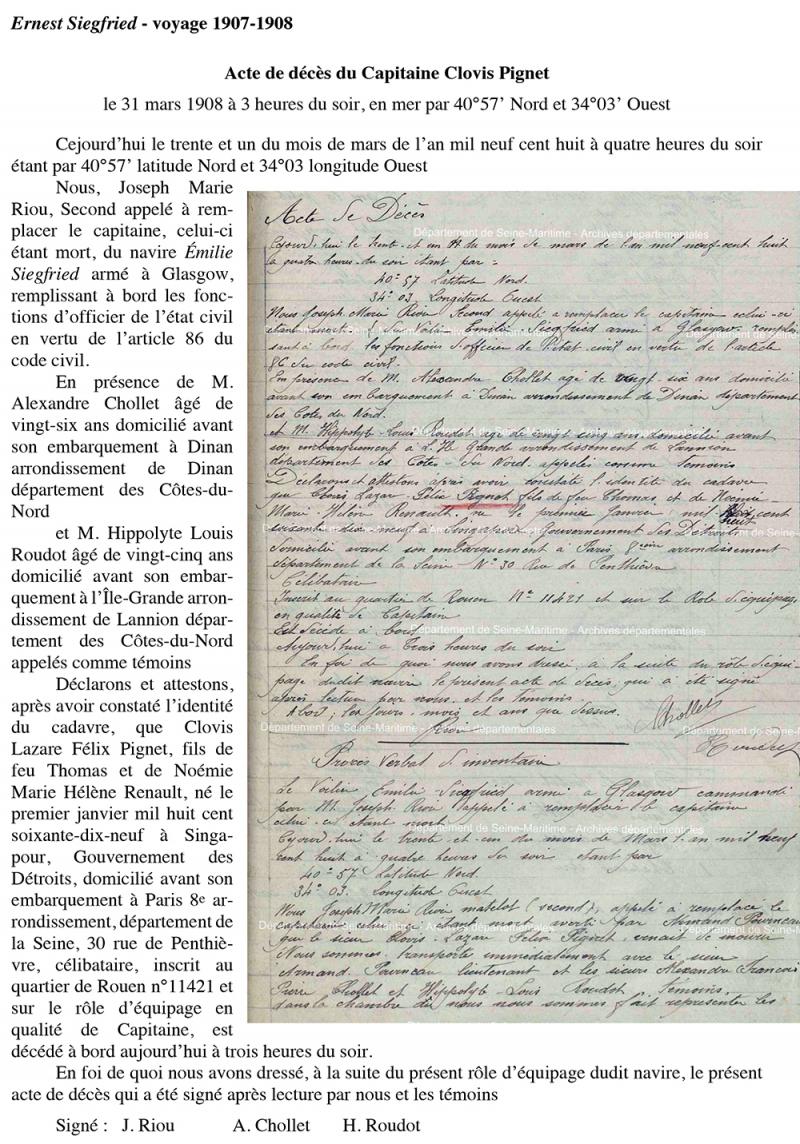 Ernest Siegfried - voyage 1907-1908
Acte de décès du Capitaine Clovis Pignet
le 31 mars 1908 à 3 heures du soir, en mer par 40°57’ Nord et 34°03’ Ouest
Cejourd’hui le trente et un du mois de mars de l’an mil neuf cent huit à quatre heures du soir
étant par 40°57’ latitude Nord et 34°03 longitude Ouest
Nous, Joseph Marie
Riou, Second appelé à rem-
placer le capitaine, celui-ci
étant mort, du navire Émilie
Siegfried armé à Glasgow,
remplissant à bord les fonc-
tions d’officier de l’état civil
en vertu de l’article 86 du
code civil.
En présence de M.
Alexandre Chollet âgé de
vingt-six ans domicilié avant
son embarquement à Dinan
arrondissement de Dinan
département des Côtes-du-
Nord
et M. Hippolyte Louis
Roudot âgé de vingt-cinq ans
domicilié avant son embar-
quement à l’Île-Grande arron-
dissement de Lannion dépar-
tement des Côtes-du-Nord
appelés comme témoins
Déclarons et attestons,
après avoir constaté l’identité
du cadavre, que Clovis
Lazare Félix Pignet, fils de
feu Thomas et de Noémie
Marie Hélène Renault, né le
premier janvier mil huit cent
soixante-dix-neuf à Singa-
pour, Gouvernement des
Détroits, domicilié avant son
embarquement à Paris 8e ar-
rondissement, département de
la Seine, 30 rue de Penthiè-
vre, célibataire, inscrit au
quartier de Rouen n°11421 et
sur le rôle d’équipage en
qualité de Capitaine, est
décédé à bord aujourd’hui à trois heures du soir.
En foi de quoi nous avons dressé, à la suite du présent rôle d’équipage dudit navire, le présent
acte de décès qui a été signé après lecture par nous et les témoins
Signé : J. Riou A. Chollet H. Roudot
Acte de Décès
Département de Seine-Maritime - Archives départementales
Cejourd'hui le trente et un du mois de mars de l'an mil neuf cent huit
à quatre heures du soir étant par =
40° 57 Latitude Nord.
34° 03 Longitude Ouest
Nous Joseph Marie Riou Second appelé a remplacer le capitaine celui-ci
étant mort Voilier Emilie Siegfried armé a Glasgow rempli
sant à bord les fonctions d'officier de l'état civil en vertu de l'article
86 du code civil.
En présence de M. Alexandre Chollet agé de vingt-six ans domicilié
avant son embarquement à Dinan arrondissement de Dinan département
des Cotes du Nord.
et M. Hippolyte Louis Roudot agé de vingt cinq ans domicilié avant
son embarquement à L'Ile Grande arrondissement de Lannion
département des Cotes du Nord appelés comme témoins
Déclarons et attestons après avoir constaté l'identité du cadavre
que Clovis Lazar Félix Pignet fils de feu Thomas et de Noémie
Marie Renault né le premier Janvier mil huit cent
soixante dix neuf a Singapour Gouvernement des Détroits
domicilié avant son embarquement à Paris 8eme arrondissement
département de la Seine N° 30 Rue de Penthièvre
Célibataire
Inscrit au quartier de Rouen N° 11421 et sur le Role d'équipage
en qualité de Capitaine
Est décédé à bord Département de Seine-Maritime - Archives départementales
Aujourd'hui à Trois heures du soir
En foi de quoi nous avons dressé à la suite du rôle d'équi
page dudit navire le présent acte de décès qui a été signé
après lecture par nous et les témoins
A bord, les jours, mois et ans que dessus.
AChollet
Procès Verbal d'inventaire
Le Voilier Emilie Siegfried armé a Glasgow commandé
par M. Joseph Riou appelé à remplacer le capitaine
celui-ci étant mort
Cejourd'hui le trente et un du mois de Mars l'an mil neuf
cent huit a quatre heures du soir étant par
40° 57 Latitude Nord.
34° 03. Longitude Ouest
Nous Joseph Marie Riou matelot (second), appelé a remplacer le
capitaine averti par Armand
que le sieur Clovis Lazar Félix Pignet venait de mourir
Nous sommes transporté immédiatement avec le sieur
Armand lieutenant et les sieurs Alexandre Francois
Pierre Chollet et Hippolyte Louis Roudot témoins
dans la chambre où nous nous sommes fait représenter les